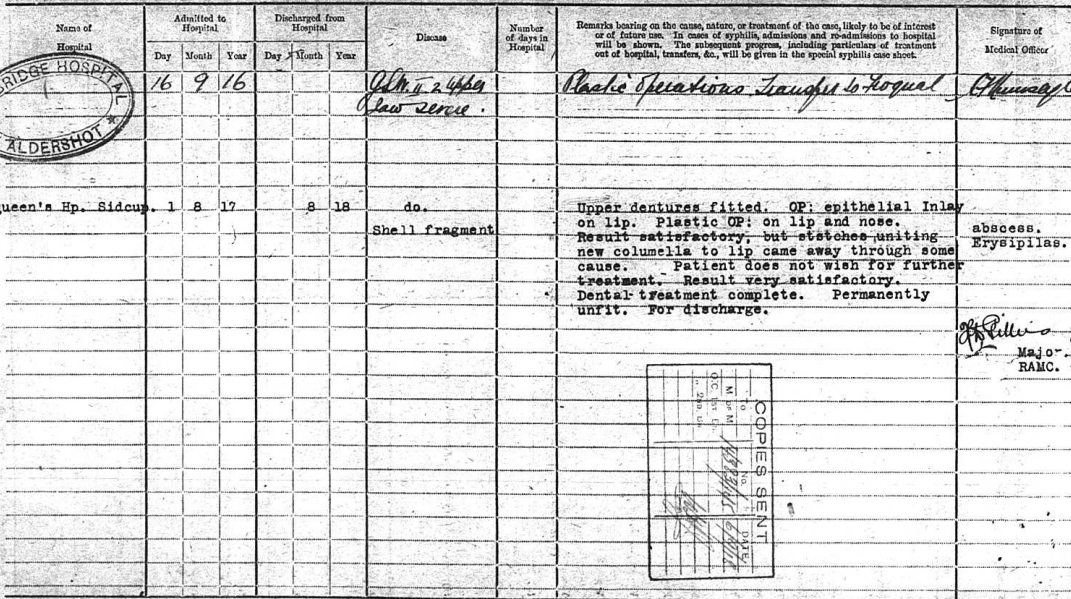 Name of
Hospital
Admitted to
Hospital
Discharged from
Hospital
Disease
Number
of days in
Hospital
Remarks bearing on the cause, nature, or treatment of the case, likely to be of interest
or of future use. In cases of syphilis, admissions and re-admissions to hospital
will be shown. The subsequent progress, including particulars of treatment
out of hospital, transfers, &c., will be given in the special syphilis case sheet.
Signature of
Medical Officer
Day Month Year Day Month Year
BRIDGE HOSPITAL
ALDERSHOT *
16 9 16 G.S.W. II 2 upper Plastic Operations Transfer to
Jaw severe.
ueen's Hp. Sidcup. 1 8 17 8 18 do. Upper dentures fitted. OP: epithelial Inlay
on lip. Plastic OP: on lip and nose.
Shell fragment abscess.
Result satisfactory, but statches uniting
Erysipilas.
new columella to lip came away through some
cause. Patient does not wish for further
treatment. Result very satisfactory.
Dental treatment complete. Permanently
unfit. For discharge.
Major.
RAMC.
COPIES SENT
To No. DATE
M of M